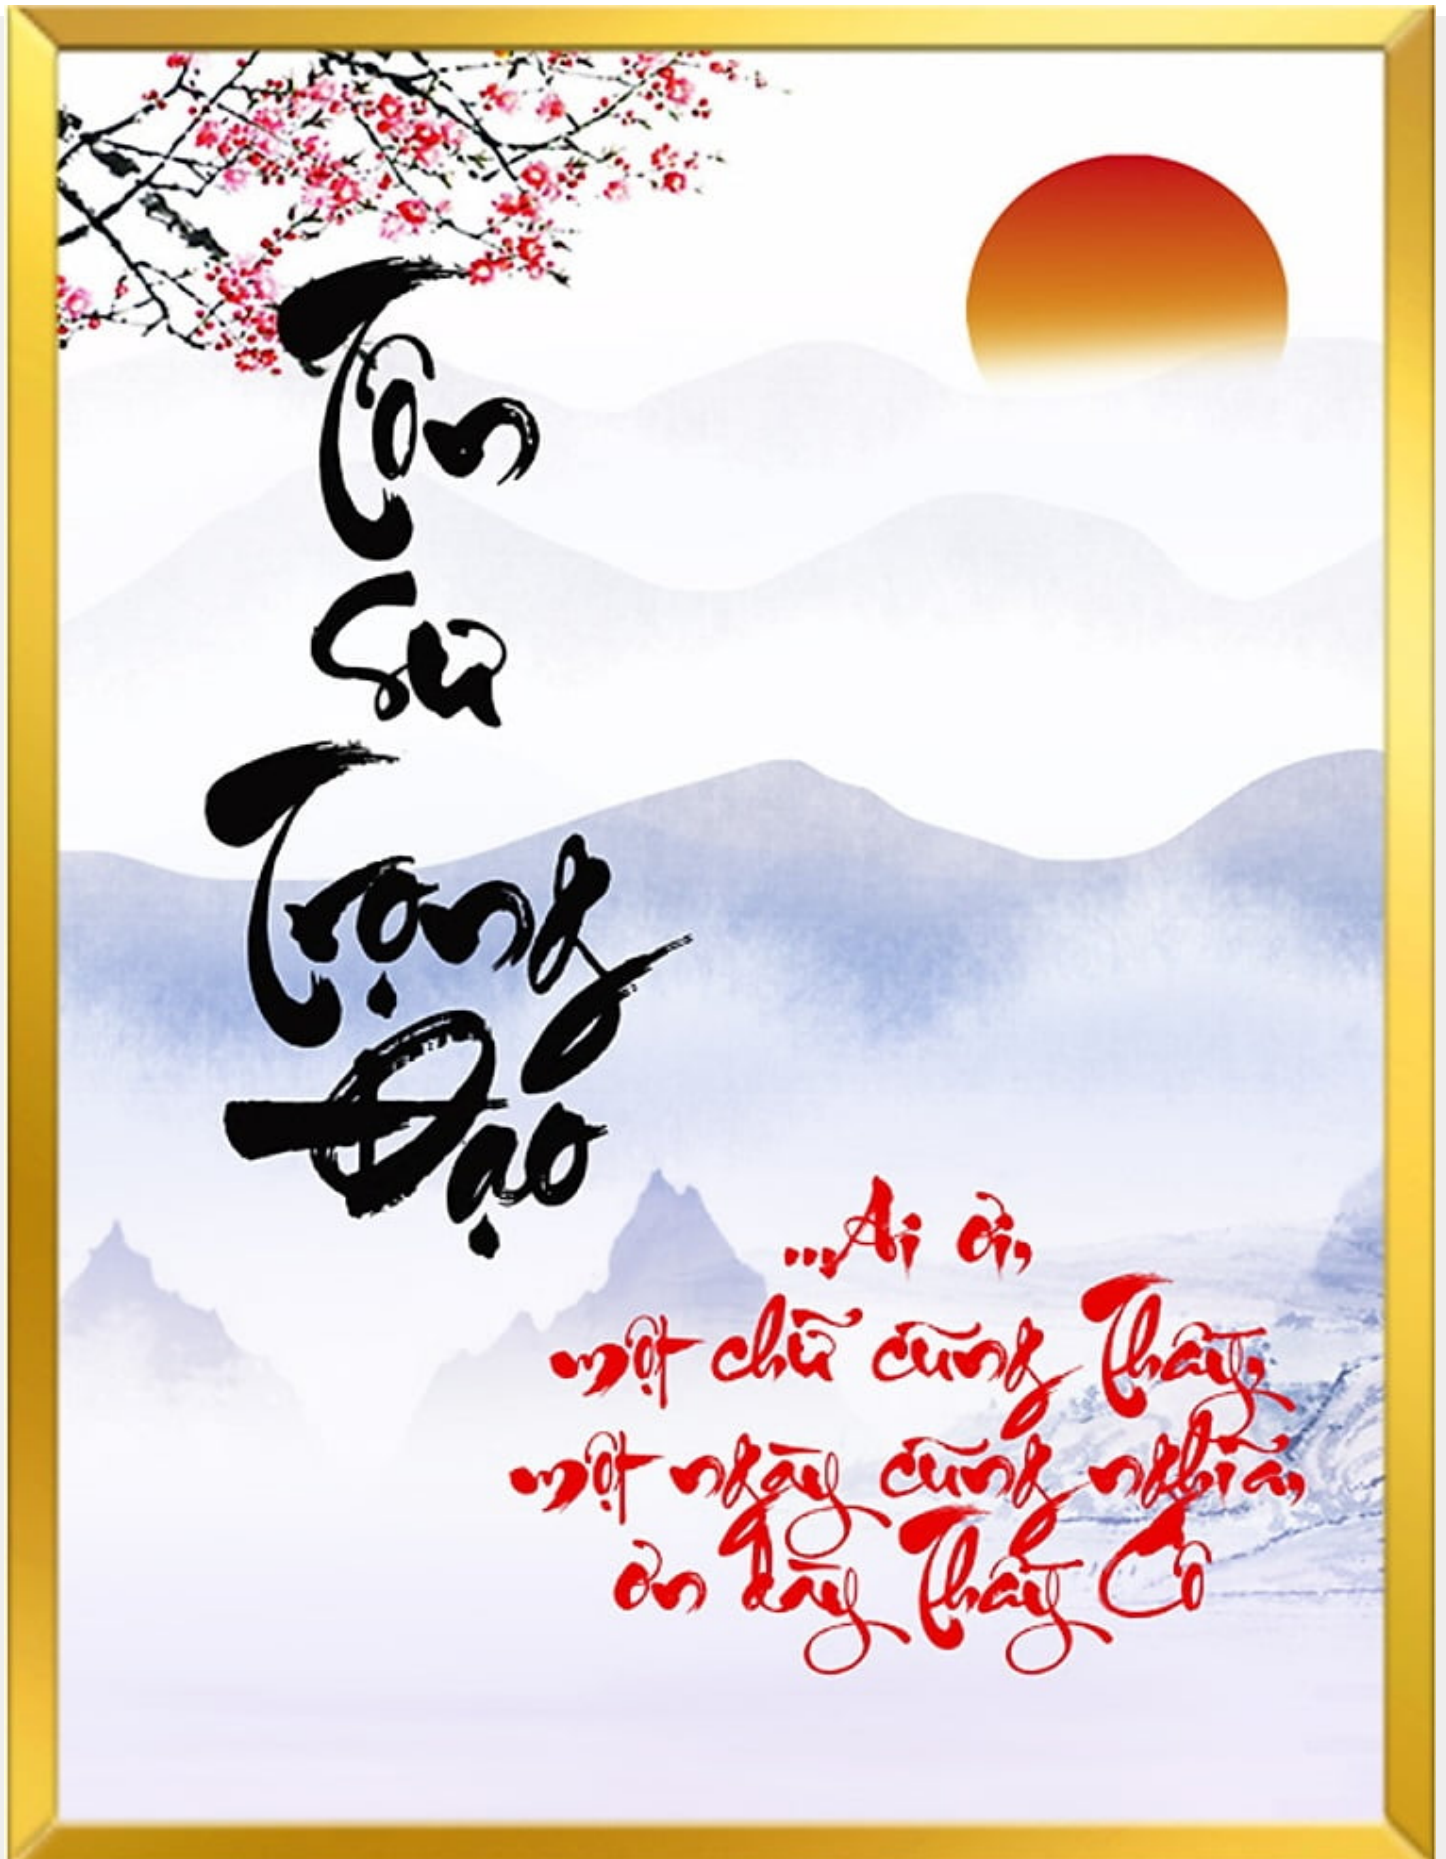 Tôn
Sư
Trọng
Đạo
...Ai ơi,
một chữ cũng Thầy,
một ngày cũng nghĩa,
ơn dày Thầy Cô